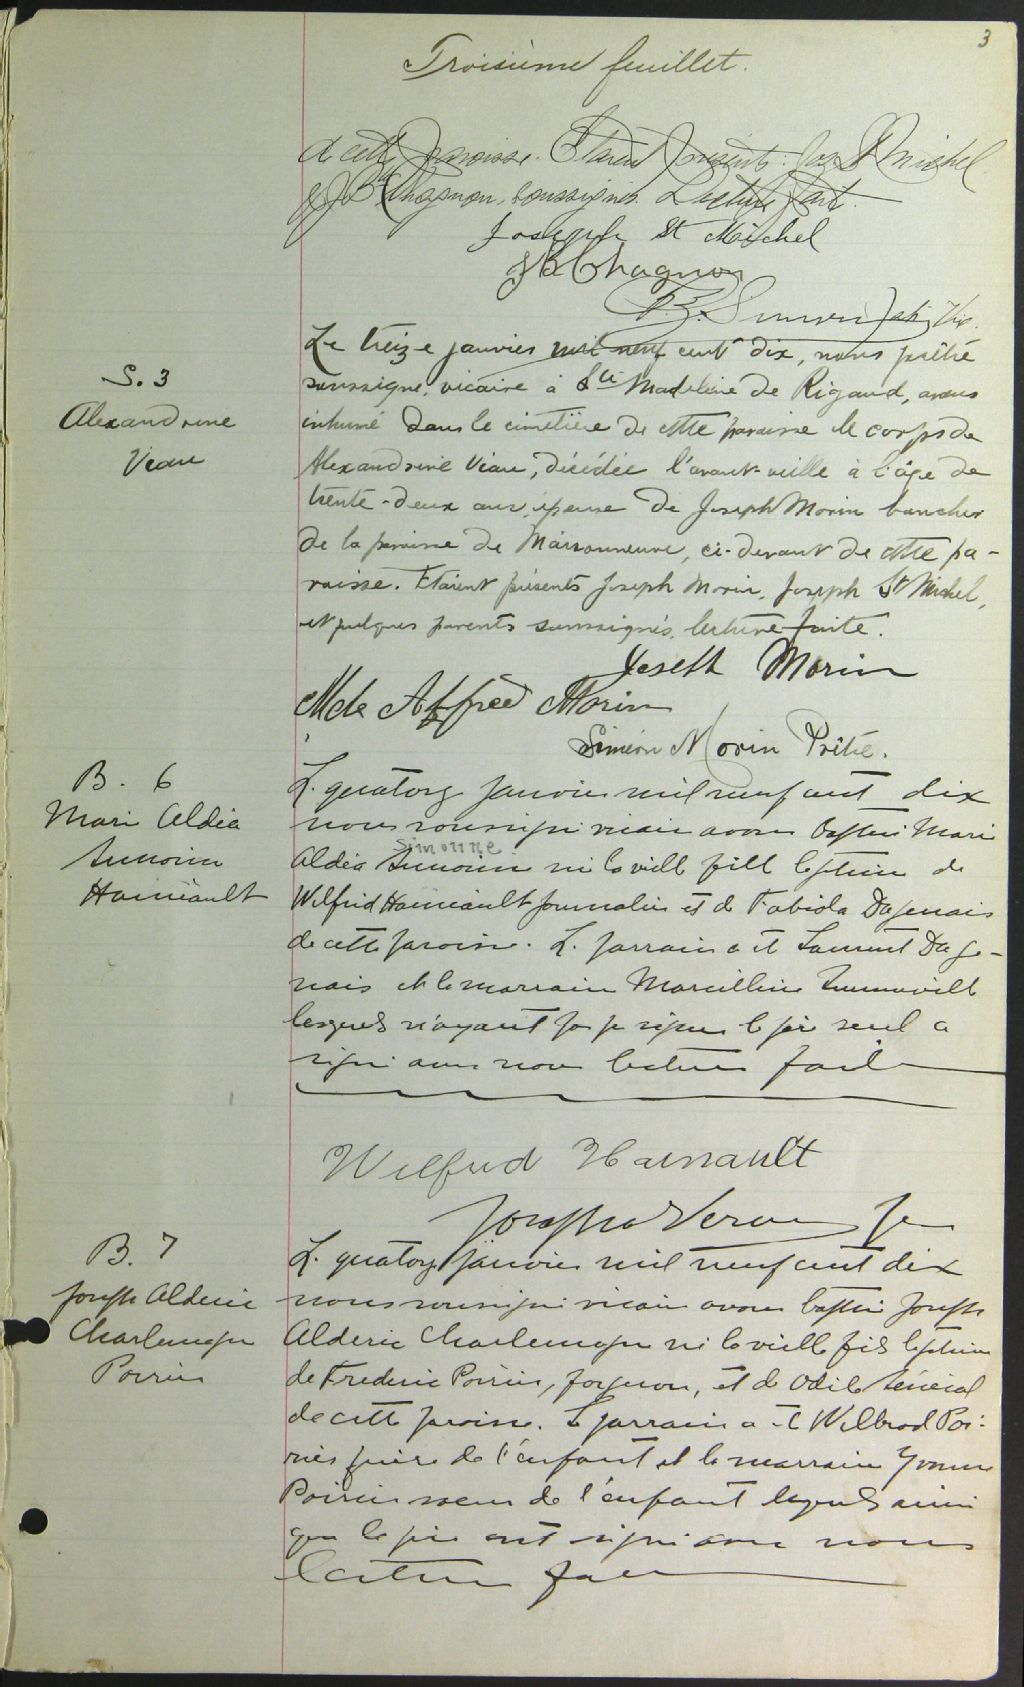 3
Troisième feuillet.
de cette paroisse. Etaient présents: Jos St Michel
& J Bte Chagnon, soussignés. Lecture faite.
Joseph St Michel
J B Chagnon
S. 3
Alexandrine
Viau
Le treize janvier mil neuf cent dix, nous prêtre
soussigné, vicaire à Ste Madeleine de Rigaud, avons
inhumé dans le cimetière de cette paroisse le corps de
Alexandrine Viau, décédée l'avant-veille à l'âge de
trente-deux ans, épouse de Joseph Morin boucher
de la paroisse de Maisonneuve, ci-devant de cette pa-
roisse. Etaient présents Joseph Morin, Joseph St Michel,
et quelques parents soussignés, lecture faite.
Joseth Morin
Mde Alfred Morin
Siméon Morin Prêtre.
B. 6
Marie Aldéa
Simonne
Hainault
Le quatorze janvier mil neuf cent dix
nous soussigné vicaire avons baptisé Marie
simonne
Aldéa née la veille fille légitime de
Wilfrid Hainault journalier et de Fabiola Dagenais
de cette paroisse. Le parrain a été Laurent Dage-
nais et la marraine Marcelline
lesquels n'ayant pu signer le père seul a
signé avec nous lecture faite
Wilfrid Hainault
B. 7
Joseph Alderic
Charlemagne
Poirier
Le quatorze janvier mil neuf cent dix
nous soussigné vicaire avons baptisé Joseph
Alderic Charlemagne né la veille fils légitime
de Frederic Poirier, forgeron, et de Odile Sénécal
de cette paroisse. Le parrain a été Wilbrod Poi-
rier frère de l'enfant et la marraine Yvonne
Poirier soeur de l'enfant lesquels ainsi
que le père ont signé avec nous
lecture faite